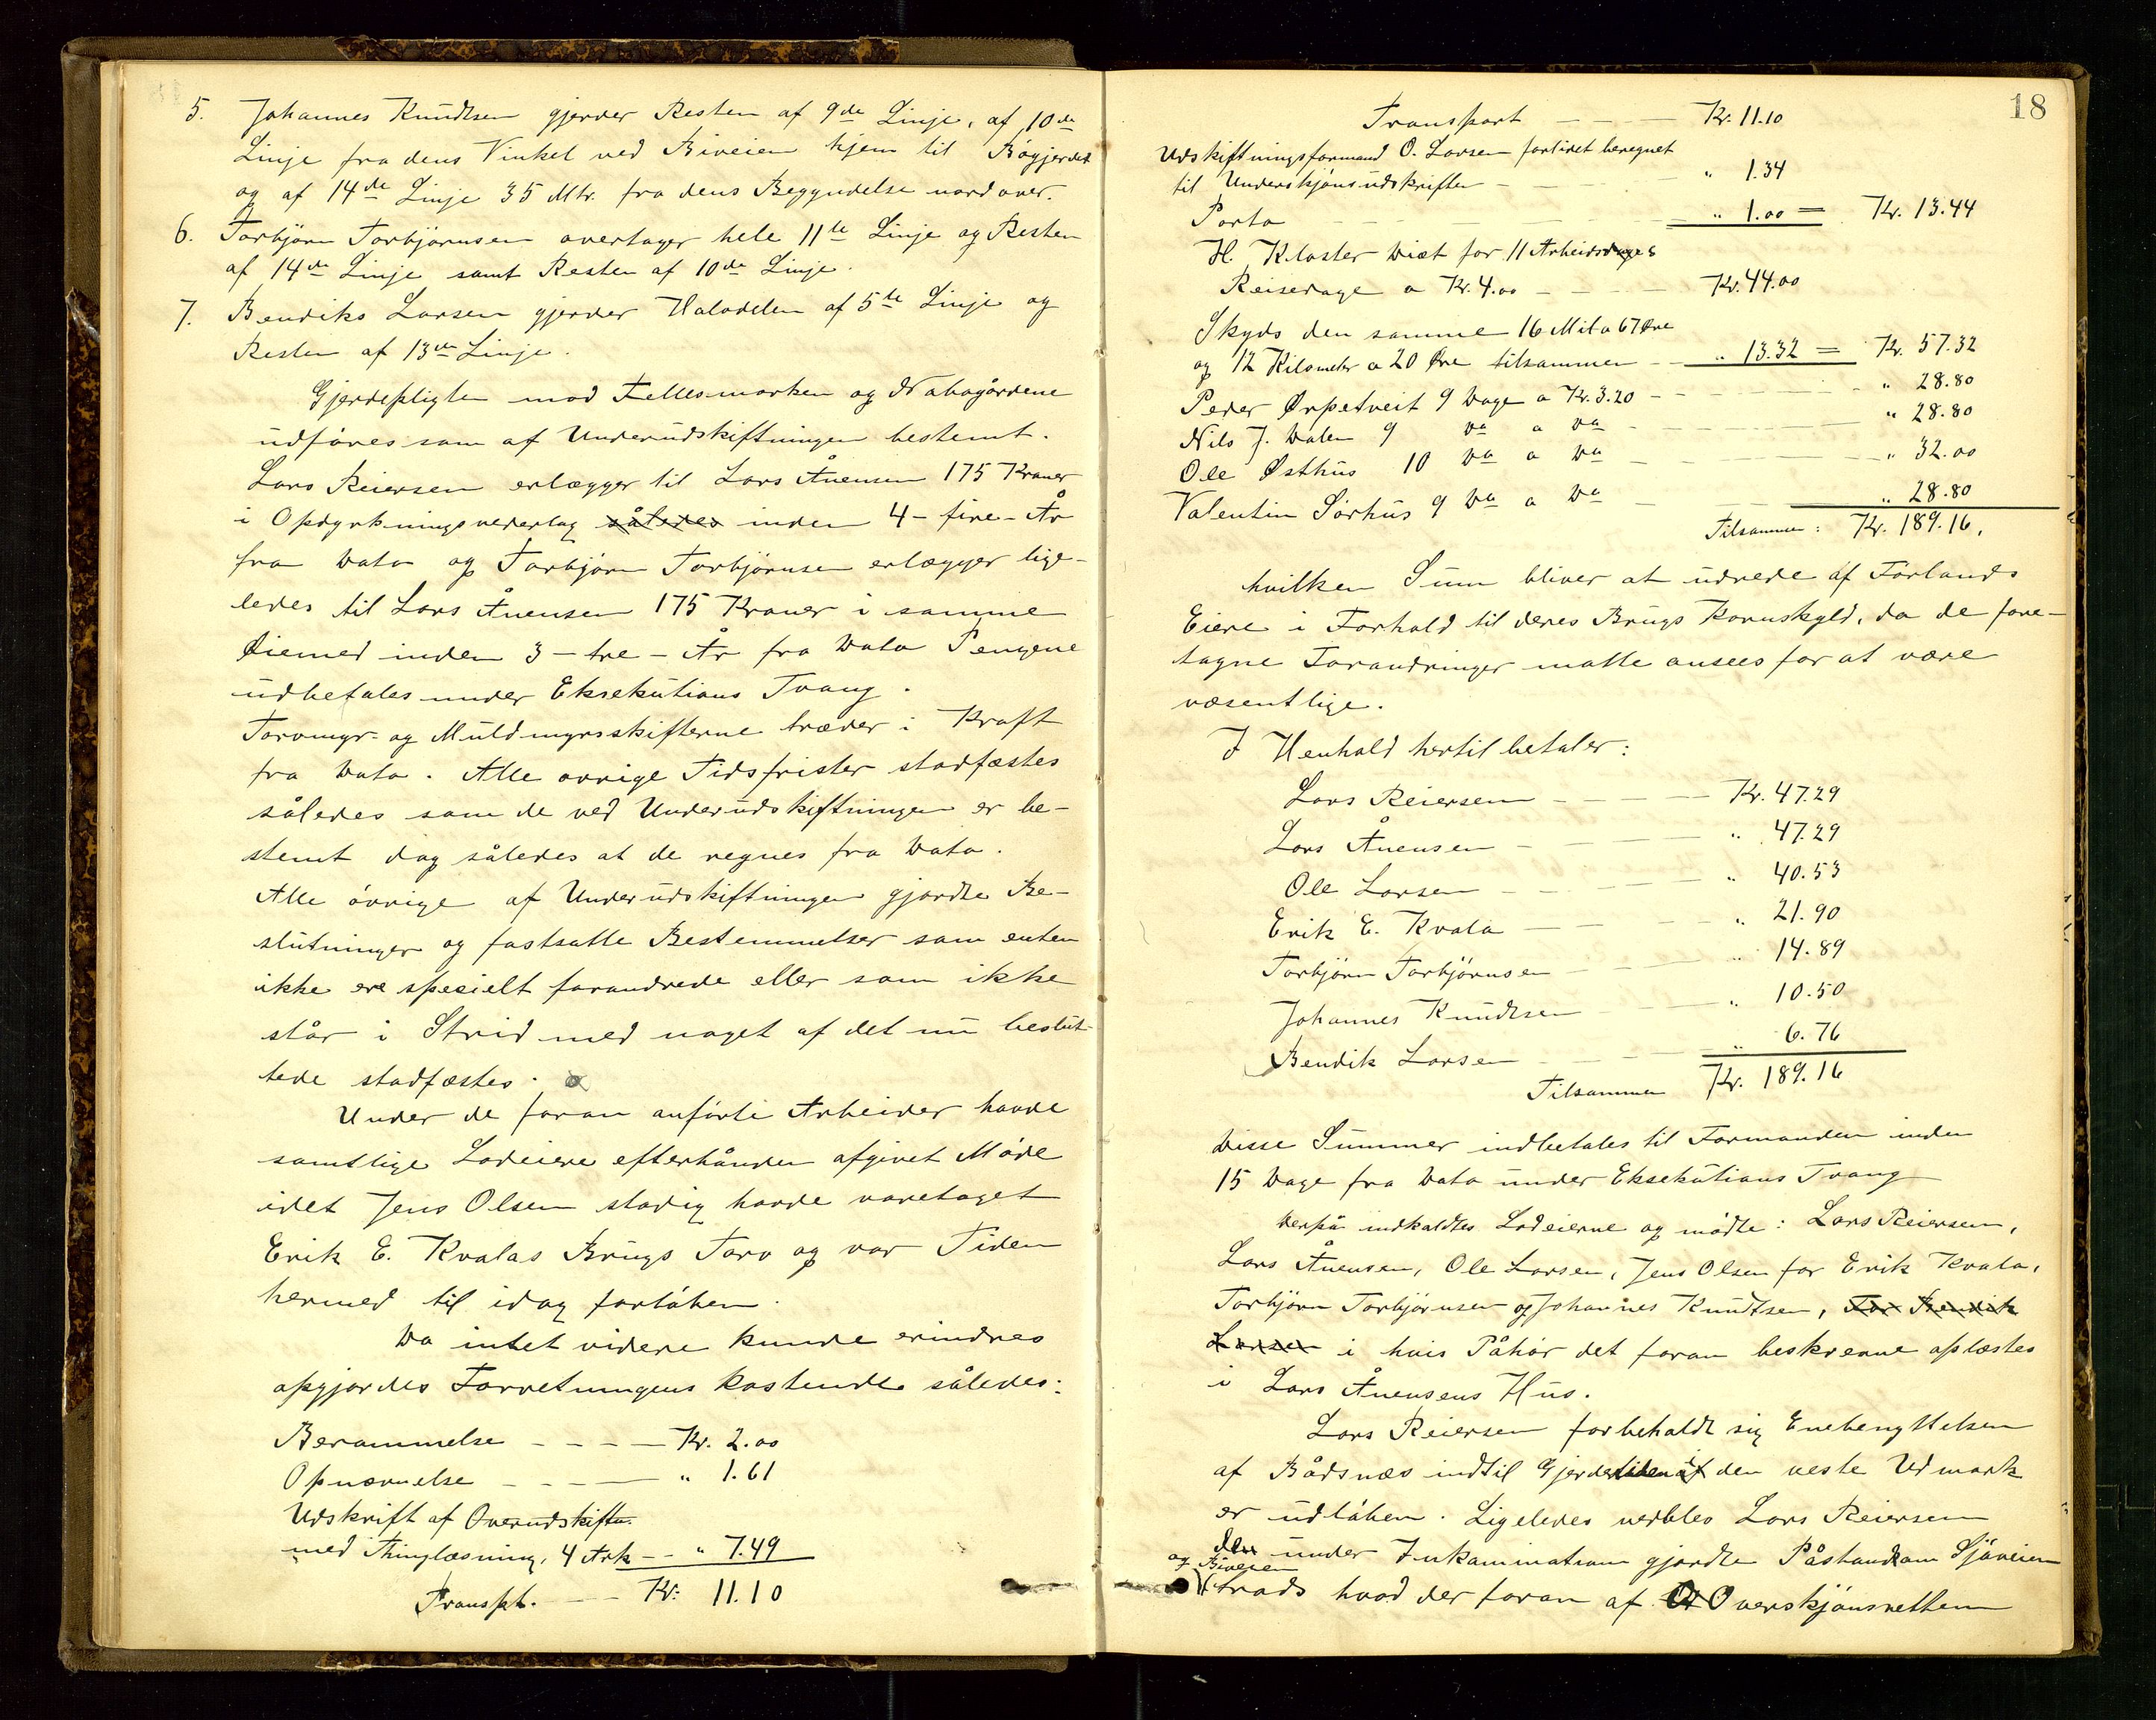 5. Johannes Knudtsen gjerder Resten af 9de Linje, af 10de
Linje fra dens Vinkel ved Biveien hjem til Bøgjerdet
og af 14de Linje 35 Mtr. fra dens Begyndelse nordover.
6. Torbjörn Torbjörnsen overtager hele 11te Linje og Resten
af 14de Linje samt Resten af 10de Linje.
7. Bendiks Larsen gjerder Halvdelen af 5te Linje og
Resten af 13de Linje.
Gjerdepligten mod Fellesmarken og Nabogårdene
udföres som af Underudskiftningen bestemt.
Lars Reiersen erlægger til Lars Ånensen 175 Kroner
i Opdyrkningsvederlag således inden 4 - fire - År
fra Dato og Torbjörn Torbjörnsen erlægger lige-
ledes til Lars Ånensen 175 Kroner i samme
Øiemed inden 3 - tre - År fra Dato Pengene
udbetales under Eksekutions Tvang.
Torvmyr- og Muldmyrsskifterne træder i Kraft
fra Dato. Alle övrige Tidsfrister stadfæstes
således som de ved Underudskiftningen er be-
stemt dog således at de regnes fra Dato.
Alle övrige af Underudskiftningen gjordte Be-
slutninger og fastsatte Bestemmelser som enten
ikke ere specielt forandrede eller som ikke
står i Strid med noget af det nu beslut-
tede stadfæstes.
Under de foran anførte Arbeider havde
samtlige Lodeiere efterhånden afgivet Möde
idet Jens Olsen stadig havde varetaget
Erik E. Kvalas Brugs Tarv og var Tiden
hermed til idag forløben.
Da intet videre kunde erindres
opgjordes Forretningens kostende således:
Berammelse - - - - Kr. 2.00
Opnævnelse - - - " 1.61
Udskrift af Overudskiftn.
med Thinglæsning, 4 Ark - - " 7.49
Transpt. - - - Kr. 11.10
18
Transport - - - Kr. 11.10
Udskiftningsformand O. Larsen fortiret beregnet
til Underskjönsudskriften - - - " 1.34
Porto - - - " 1.00 = Kr. 13.44
H. Kloster Diæt for 11 Arbeidsdage &
Reisedage a Kr. 4.00 - - - Kr. 44.00
Skyds den samme 16 Mil a 67 Øre
og 12 Kilometer a 20 Øre tilsammen - - " 13.32 = Kr. 57.32
Peder Ørpetveit 9 Dage a Kr. 3.20 - - - " 28.80
Nils J. Dalen 9 Do a Do - - - " 28.80
Ole Østhus 10 Do a Do - - - " 32.00
Valentin Sörhus 9 Do a Do - - - " 28.80
Tilsammen: Kr. 189.16,
hvilken Sum bliver at udrede af Førlands
Eiere i Forhold til deres Brugs Kornskyld, da de fore-
tagne Forandringer måtte ansees for at være
væsentlige.
I Henhold hertil betaler:
Lars Reiersen - - - Kr. 47.29
Lars Ånensen - - - " 47.29
Ole Larsen - - - " 40.53
Erik E. Kvala - - - " 21.90
Torbjörn Torbjörnsen - - - " 14.89
Johannes Knudtsen - - - " 10.50
Bendik Larsen - - - " 6.76
Tilsammen Kr. 189.16
Disse Summer indbetales til Formanden inden
15 Dage fra Dato under Eksekutions Tvang
Derpå indkaldtes Lodeierne og mödte: Lars Reiersen,
Lars Ånensen, Ole Larsen, Jens Olsen for Erik Kvala,
Torbjörn Torbjörnsen og Johannes Knudtsen, For Bendik
Larsen i hvis Påhör det foran beskrevne oplæstes
i Lars Ånensens Hus.
Lars Reiersen forbeholdt sig Enebenyttelsen
af Bådsnæs indtil Gjerdetiden af den veste Udmark
er udløben. Ligeledes vedblev Lars Reiersen
den under Inkamination gjordte Påstand om Sjöveien
og Biveien
trods hvad der foran af Overskjönsretten